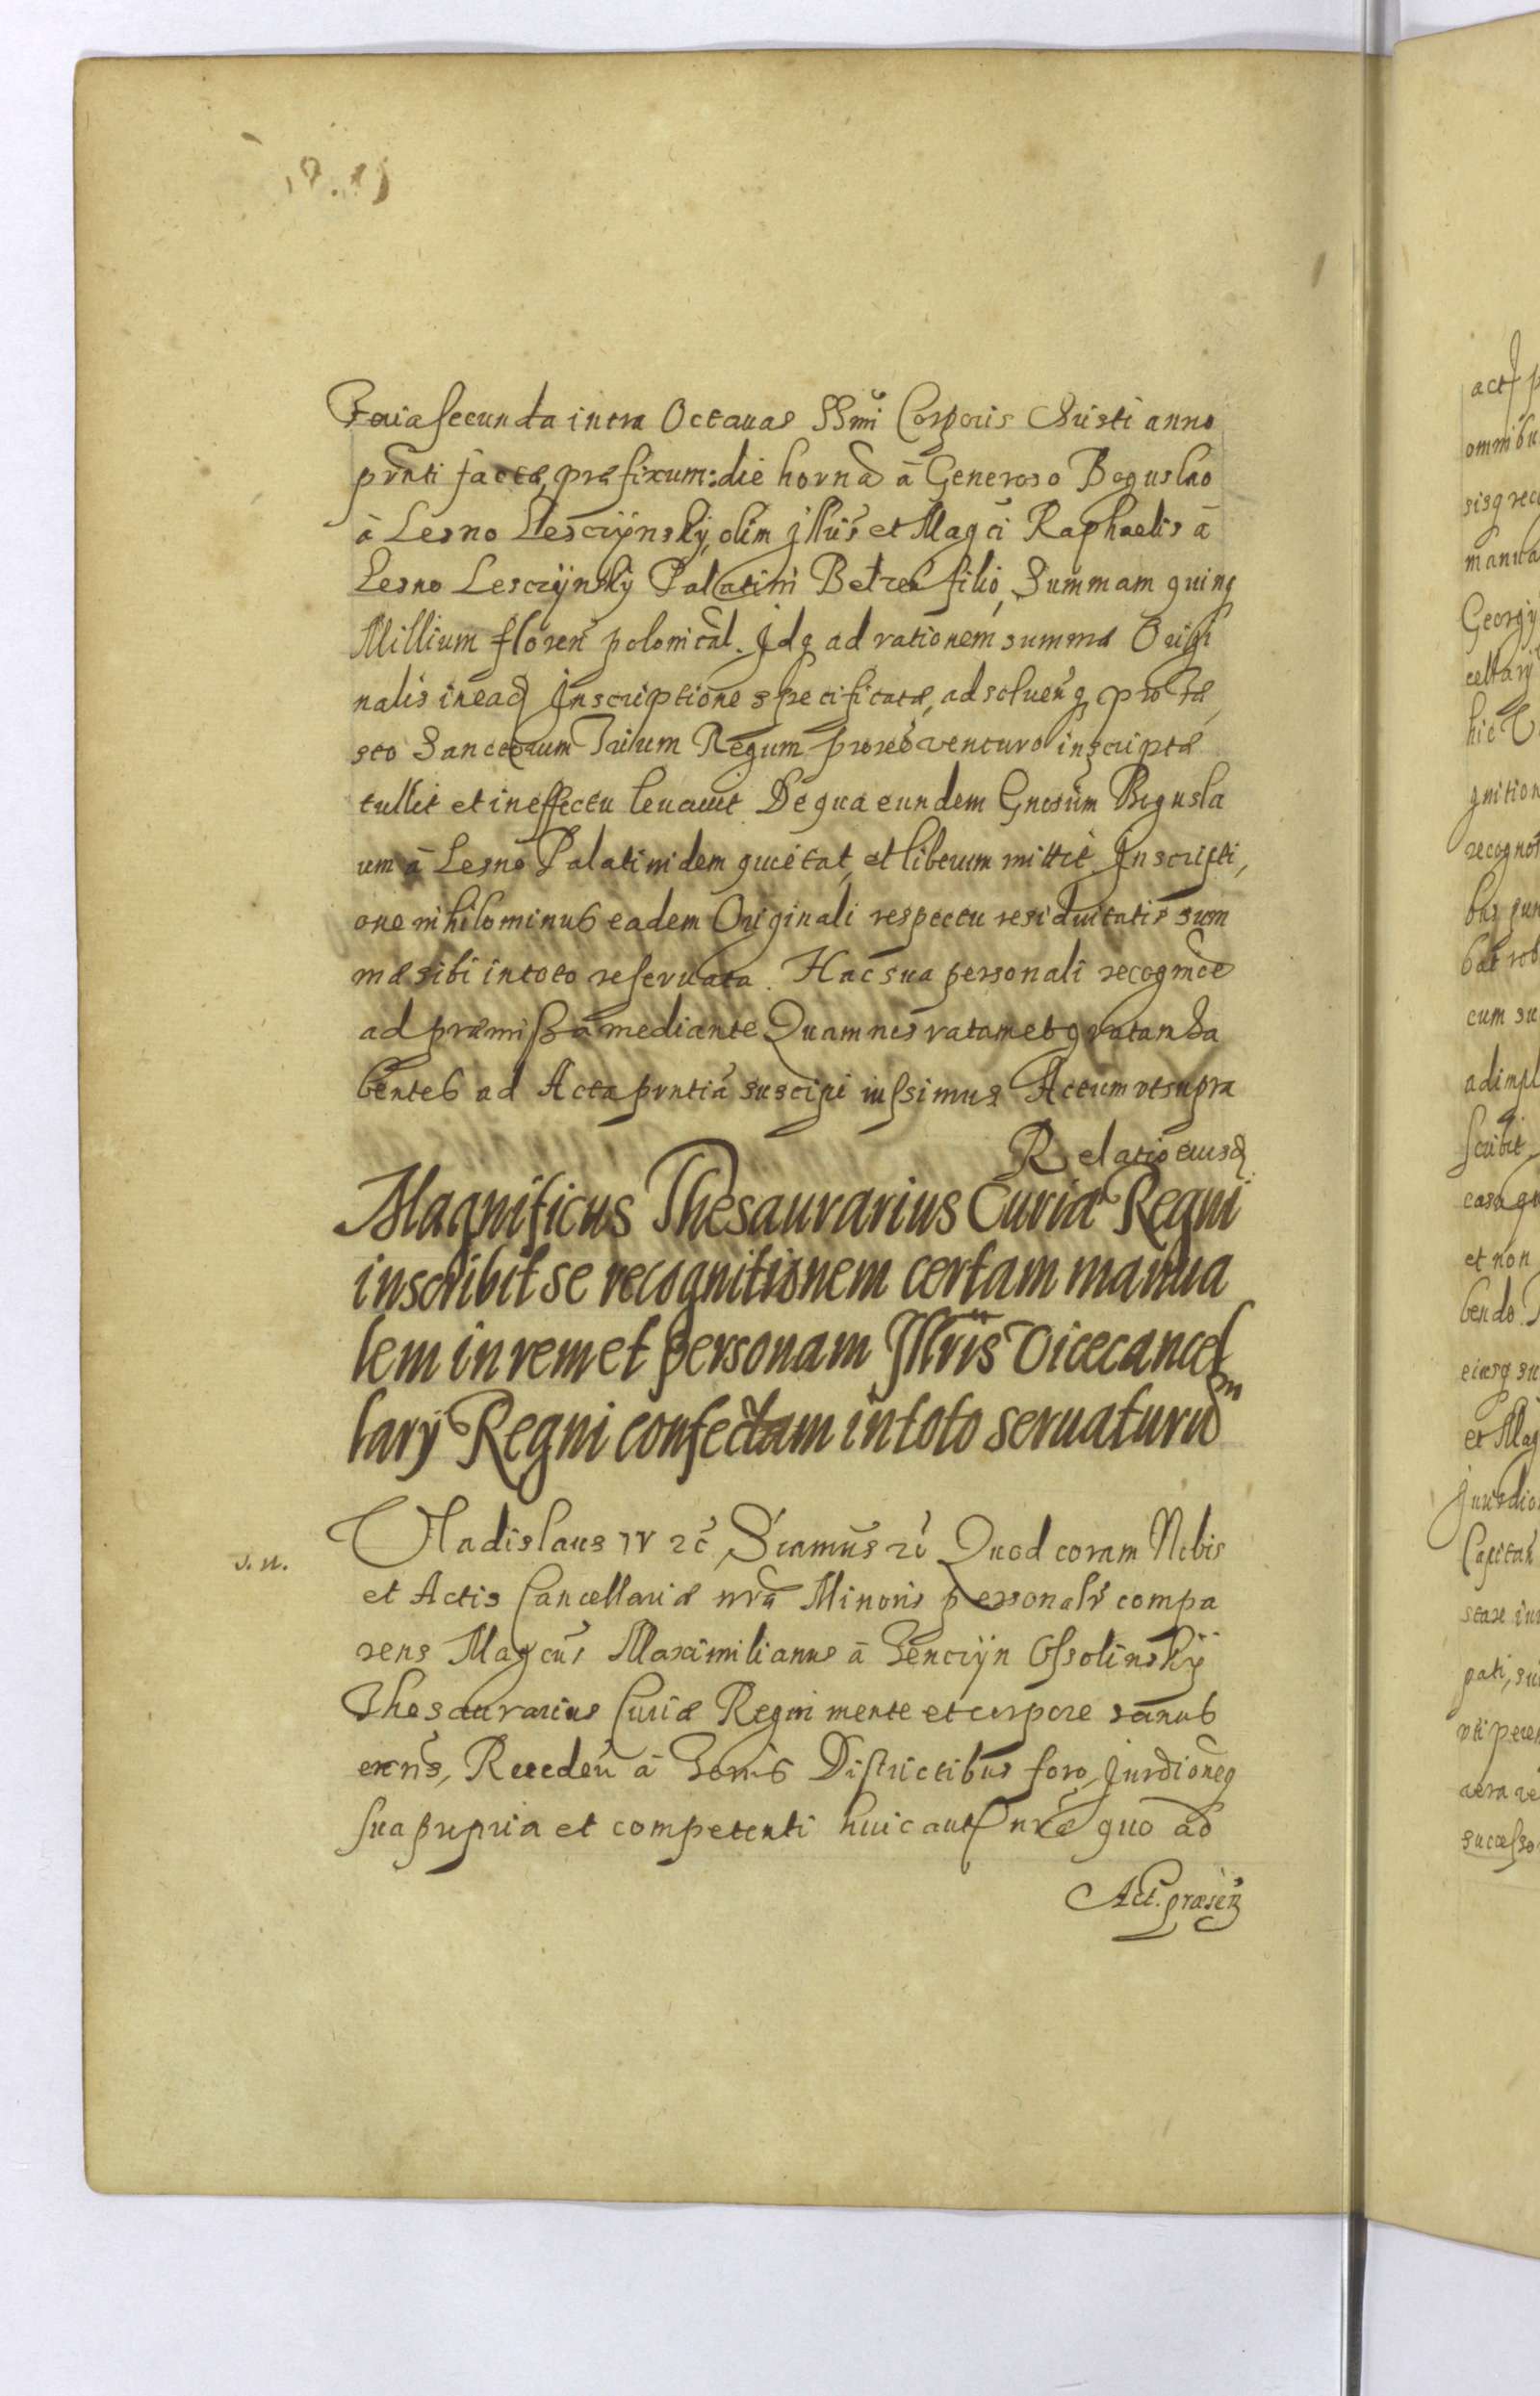 Feria secunda intra Octauas SSmi Corporis Christi anno
prnti factæ, præfixum: die hornã à Generoso Boguslao
à Lesno Lesczÿnskÿ, olim Jllris et Magci Raphaelis à
Lesno Lesczÿnskÿ Palatini Belzen filio, Summam quinq
Millium floren polonical. Jdq ad rationem summæ Origi
nalis in eadẽ Jnscriptione specificatæ, ad soluenq pro Fe,
sto Sanctorum Trium Regum proxe venturo inscriptæ
tullit et in effectu leuauit. De qua eundem Gnosum Bogusla
um à Lesno Palatinidem quietat, et liberum mittit Jnscripti,
one nihilominus eadem Originali respectu residuitatis sum
mæ sibi in toto reseruata. Hac sua personali recognice
ad præmissa mediante Quam nos ratam et gratam ha
bentes ad Acta prntia suscipi iussimus Actum vt supra
Relatio eiusd
Magnificus Thesaurarius Curiæ Regni
inscribit se recognitionem certam manua
lem in rem et personam Jllris Vicecancel
larÿ Regni confectam in toto seruaturum
Vladislaus IV zc Sicamus zc Quod coram Nobis
et Actis Cancellariæ nræ Minoris personalr compa
rens Magcus Maximilianus à Tenczÿn Ossolinskÿ
Thesaurarius Curiæ Regni mente et corpore sanus
exns, Receden à Terris Districtibus foro, Jurdioneq
sua propria et competenti huic aut nræ quo ad
Act. præsen